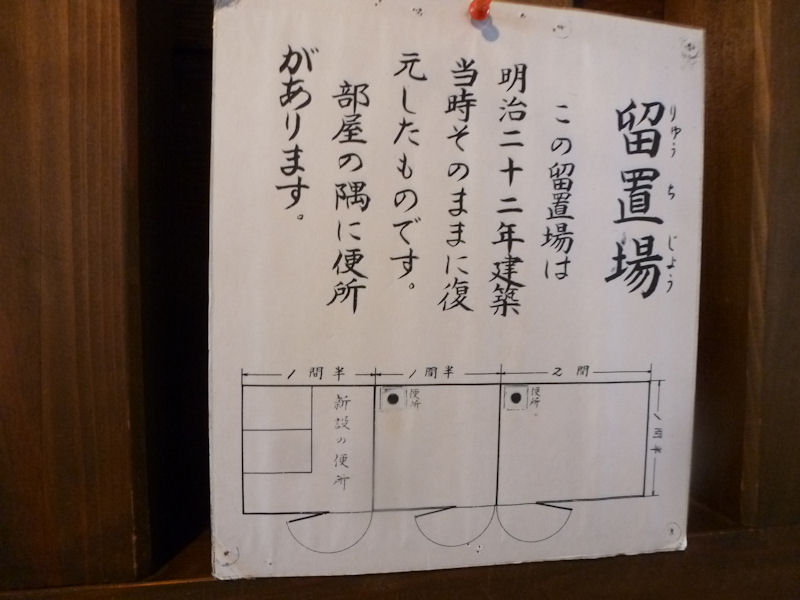 留置場
りゅうちじょう
この留置場は
明治二十二年建築
当時そのままに復
元したものです。
部屋の隅に便所
があります。
1間半
1間半
2間
新設の便所
便所
便所。
1間半